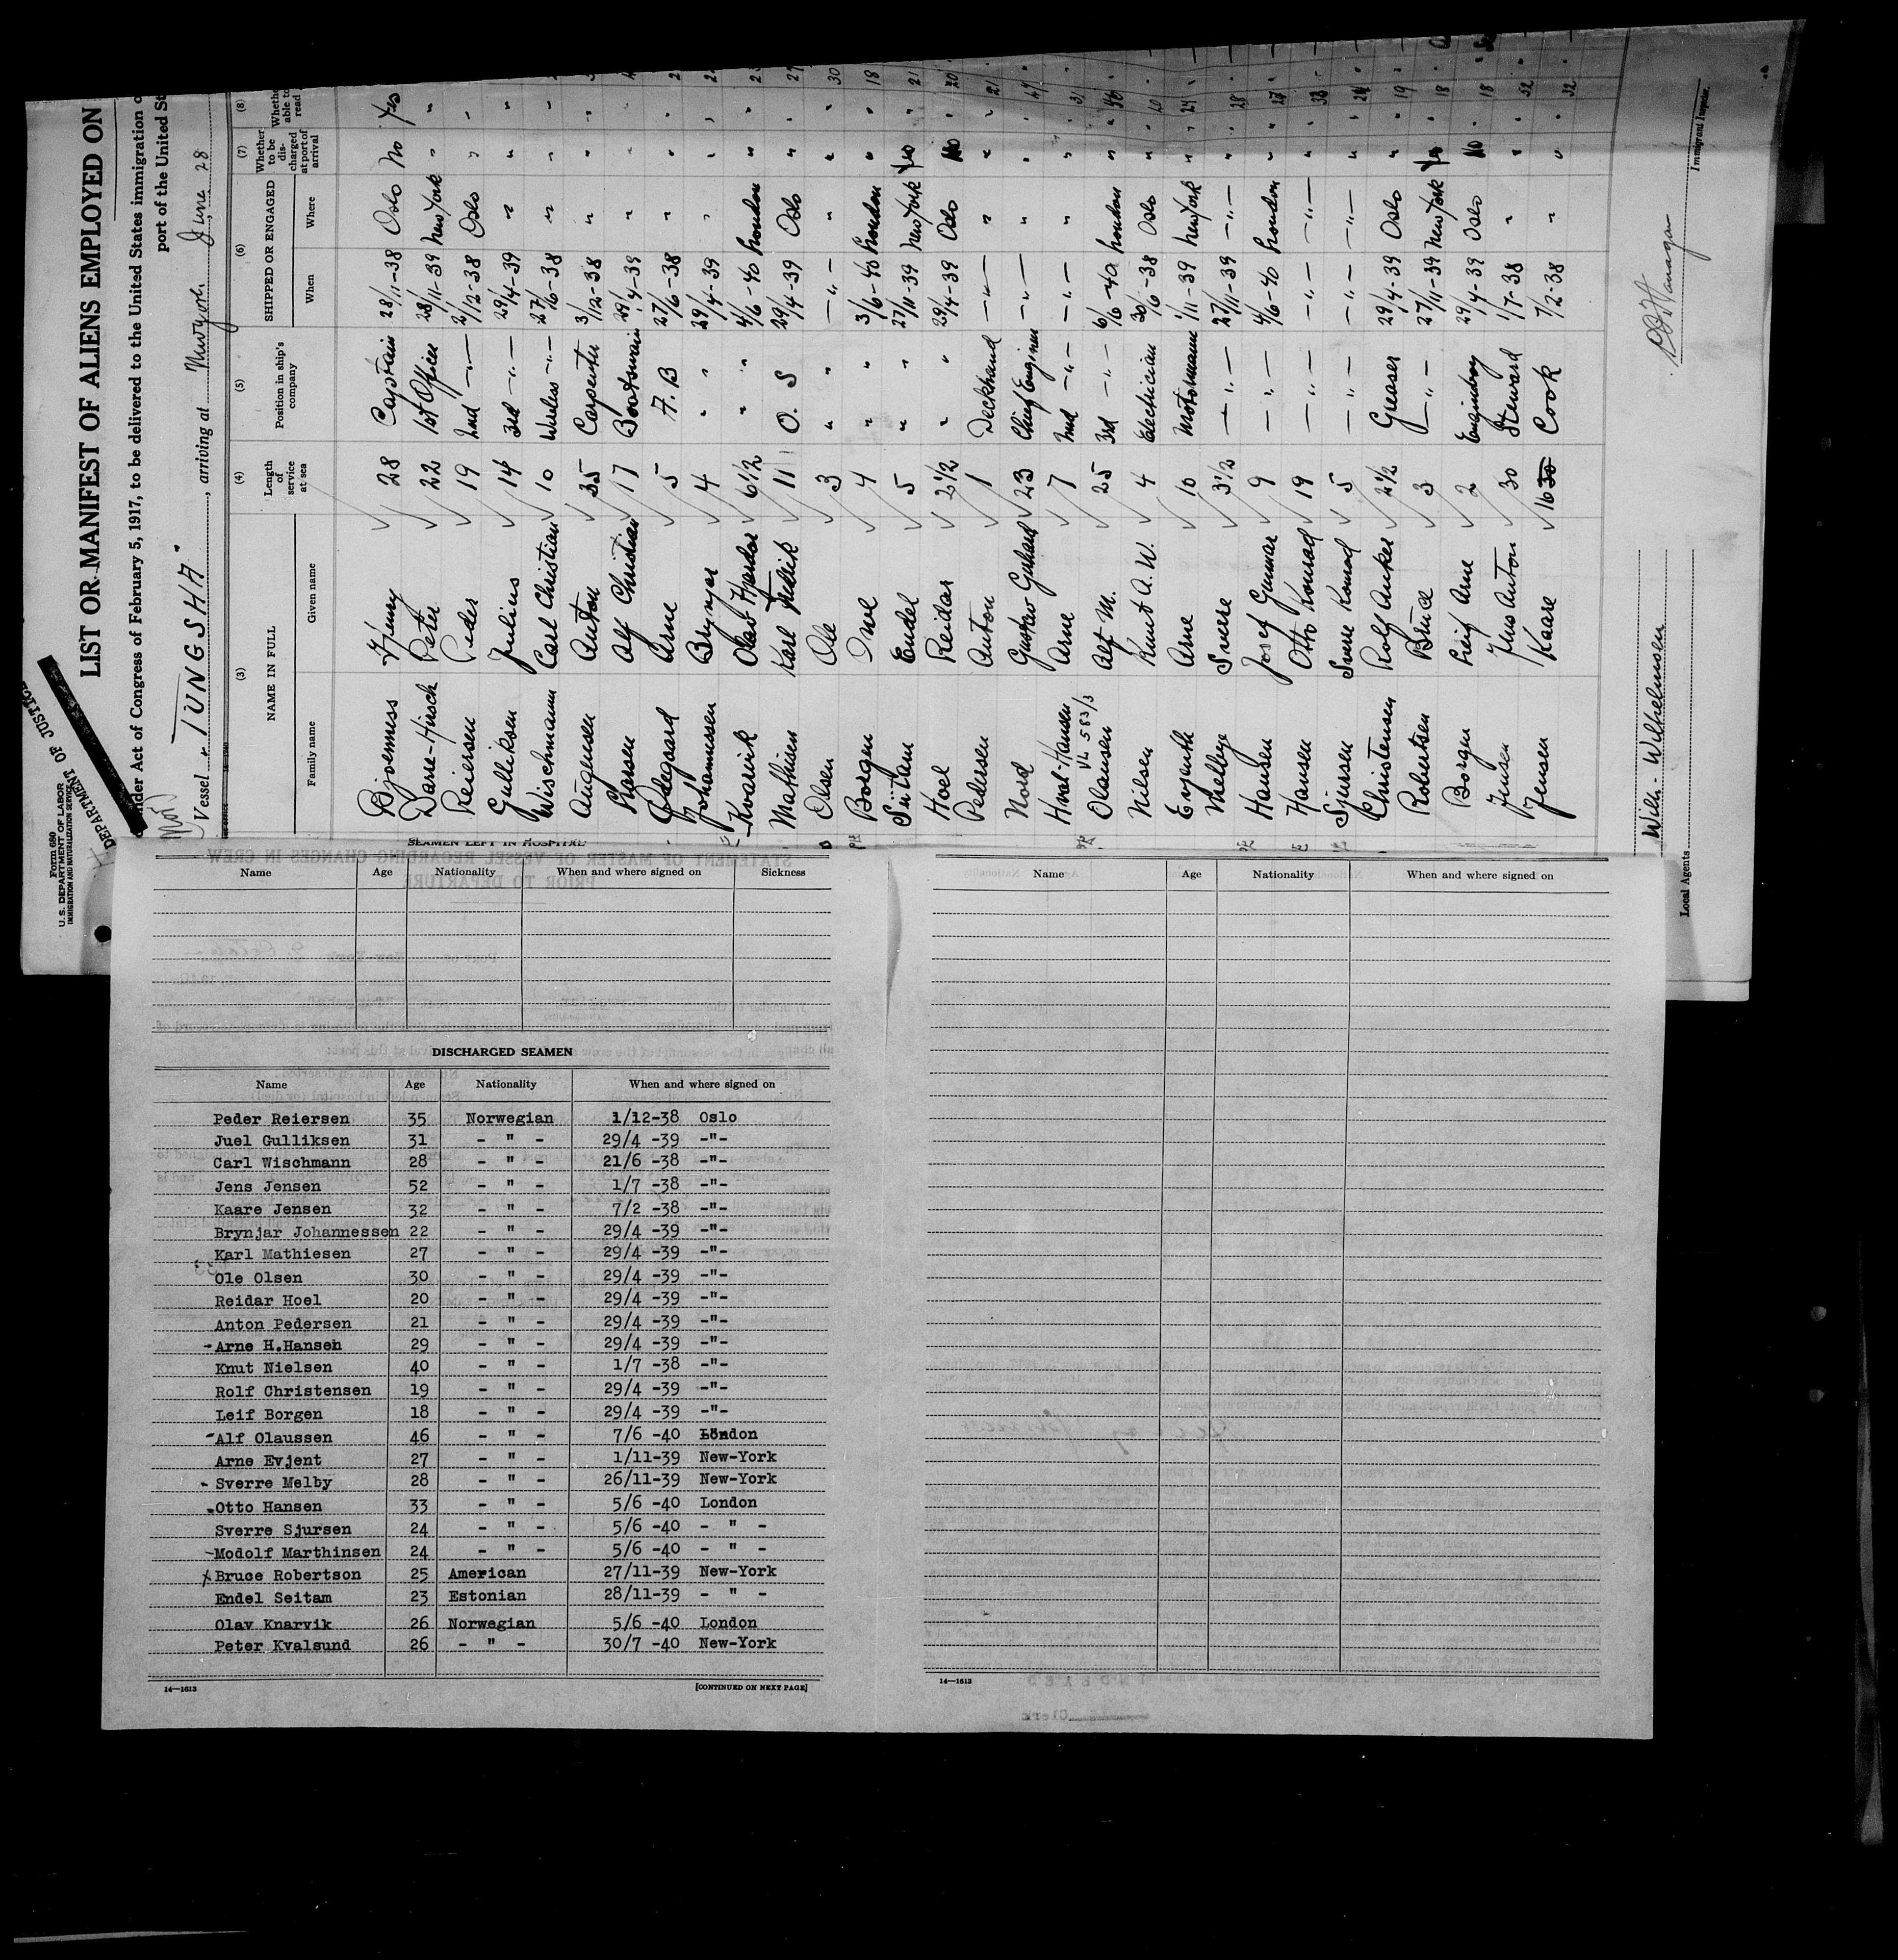 Form 680
U.S. DEPARTMENT OF LABOR
IMMIGRATION AND NATURALIZATION SERVICE
DEPARTMENT OF JUSTICE
LIST OR MANIFEST OF ALIENS EMPLOYED ON
Under Act of Congress of February 5, 1917, to be delivered to the United States immigration
port of the United St
Vessel "TUNGSHA", arriving at New York June 28
(3) (4) (5) (6) (7) (8)
NAME IN FULL Length of service at sea Position in ship's company SHIPPED OR ENGAGED Whether to be discharged at port of arrival Whether able to read
Family name Given name When Where
Bjoenness 28 Captain 28/11-38 Oslo No Yes
Darre-Hirsch Peter 22 1st Officer 28/11-39 New York " "
Reiersen Peder 19 2nd -"- 2/12-38 Oslo " "
Gulliksen Julius 14 3rd -"- 29/4-39 " " "
Wischmann Carl Christian 10 Wireless -"- 27/6-38 " " "
Augunsen Anton 35 Carpenter 3/12-38 " " "
Alf Christian 17 Bootswain 29/4-39 " " "
Ødegaard Arne 5 A.B 27/6-38 " " "
Johannussen Brynjar 4 " " 29/4-39 " " " 22
Kvarvik Olav Hardor 6 1/2 " " 4/6-40 London " "
Mathisen Karl Fredrik 11 O. S 29/4-39 Oslo " " 27
Olsen Ole 3 " " -"- " " " 30
Borgen Owe 4 " " 3/6-40 London " " 18
Endel 5 " " 27/11-39 New York Yes " 21
Hoel Reidar 2 1/2 " " 29/4-39 Oslo No " 20
Pedersen Anton 1 Deckhand -"- " " " 21
Nord Gustav Gerhard 23 Chief Engineer -"- " " " 47
Hval-Hansen Arne 7 2nd -"- -"- " " " 31
VL 583/3
Olausen Alf M. 25 3rd -"- 6/6-40 London " " 46
Nilsen Knut A. W. 4 Electrician 30/6-38 Oslo " "
Evjenth Arne 10 Motormann 1/11-39 New York " "
Melbye Sverre 3 1/2 -"- 27/11-39 -"- " " 28
Hansen Josef Gunnar 9 -"- 4/6-40 London " " 27
Hansen Otto Konrad 19 -"- -"- -"- " " 33
Sjursen Sverre Konrad 5 -"- -"- -"- " " 24
Christensen Rolf Anker 2 1/2 Greaser 29/4-39 Oslo " " 19
Robertsen Bruce 3 -"- 27/11-39 New York Yes " 18
Borgen Leif Arne 2 Engineboy 29/4-39 Oslo No " 18
Jensen Jens Anton 30 Steward 1/7-38 " " " 52
Jensen Kaare 16 Cook 7/2-38 " " " 32
Wilh. Wilhelmsen
Local Agents
Immigrant Inspector.
SEAMEN LEFT IN HOSPITAL
Name Age Nationality When and where signed on Sickness
DISCHARGED SEAMEN
Name Age Nationality When and where signed on
Peder Reiersen 35 Norwegian 1/12-38 Oslo
Juel Gulliksen 31 - " - 29/4 -39 -"-
Carl Wischmann 28 - " - 21/6 -38 -"-
Jens Jensen 52 - " - 1/7 -38 -"-
Kaare Jensen 32 - " - 7/2 -38 -"-
Brynjar Johannessen 22 - " - 29/4 -39 -"-
Karl Mathiesen 27 - " - 29/4 -39 -"-
Ole Olsen 30 - " - 29/4 -39 -"-
Reidar Hoel 20 - " - 29/4 -39 -"-
Anton Pedersen 21 - " - 29/4 -39 -"-
Arne H.Hansen 29 - " - 29/4 -39 -"-
Knut Nielsen 40 - " - 1/7 -38 -"-
Rolf Christensen 19 - " - 29/4 -39 -"-
Leif Borgen 18 - " - 29/4 -39 -"-
Alf Olaussen 46 - " - 7/6 -40 London
Arne Evjent 27 - " - 1/11-39 New-York
Sverre Melby 28 - " - 26/11-39 New-York
Otto Hansen 33 - " - 5/6 -40 London
Sverre Sjursen 24 - " - 5/6 -40 - " -
Modolf Marthinsen 24 - " - 5/6 -40 - " -
Bruce Robertson 25 American 27/11-39 New-York
Endel Seitam 23 Estonian 28/11-39 - " -
Olav Knarvik 26 Norwegian 5/6 -40 London
Peter Kvalsund 26 - " - 30/7 -40 New-York
14—1613 [CONTINUED ON NEXT PAGE]
Name Age Nationality When and where signed on
14—1613